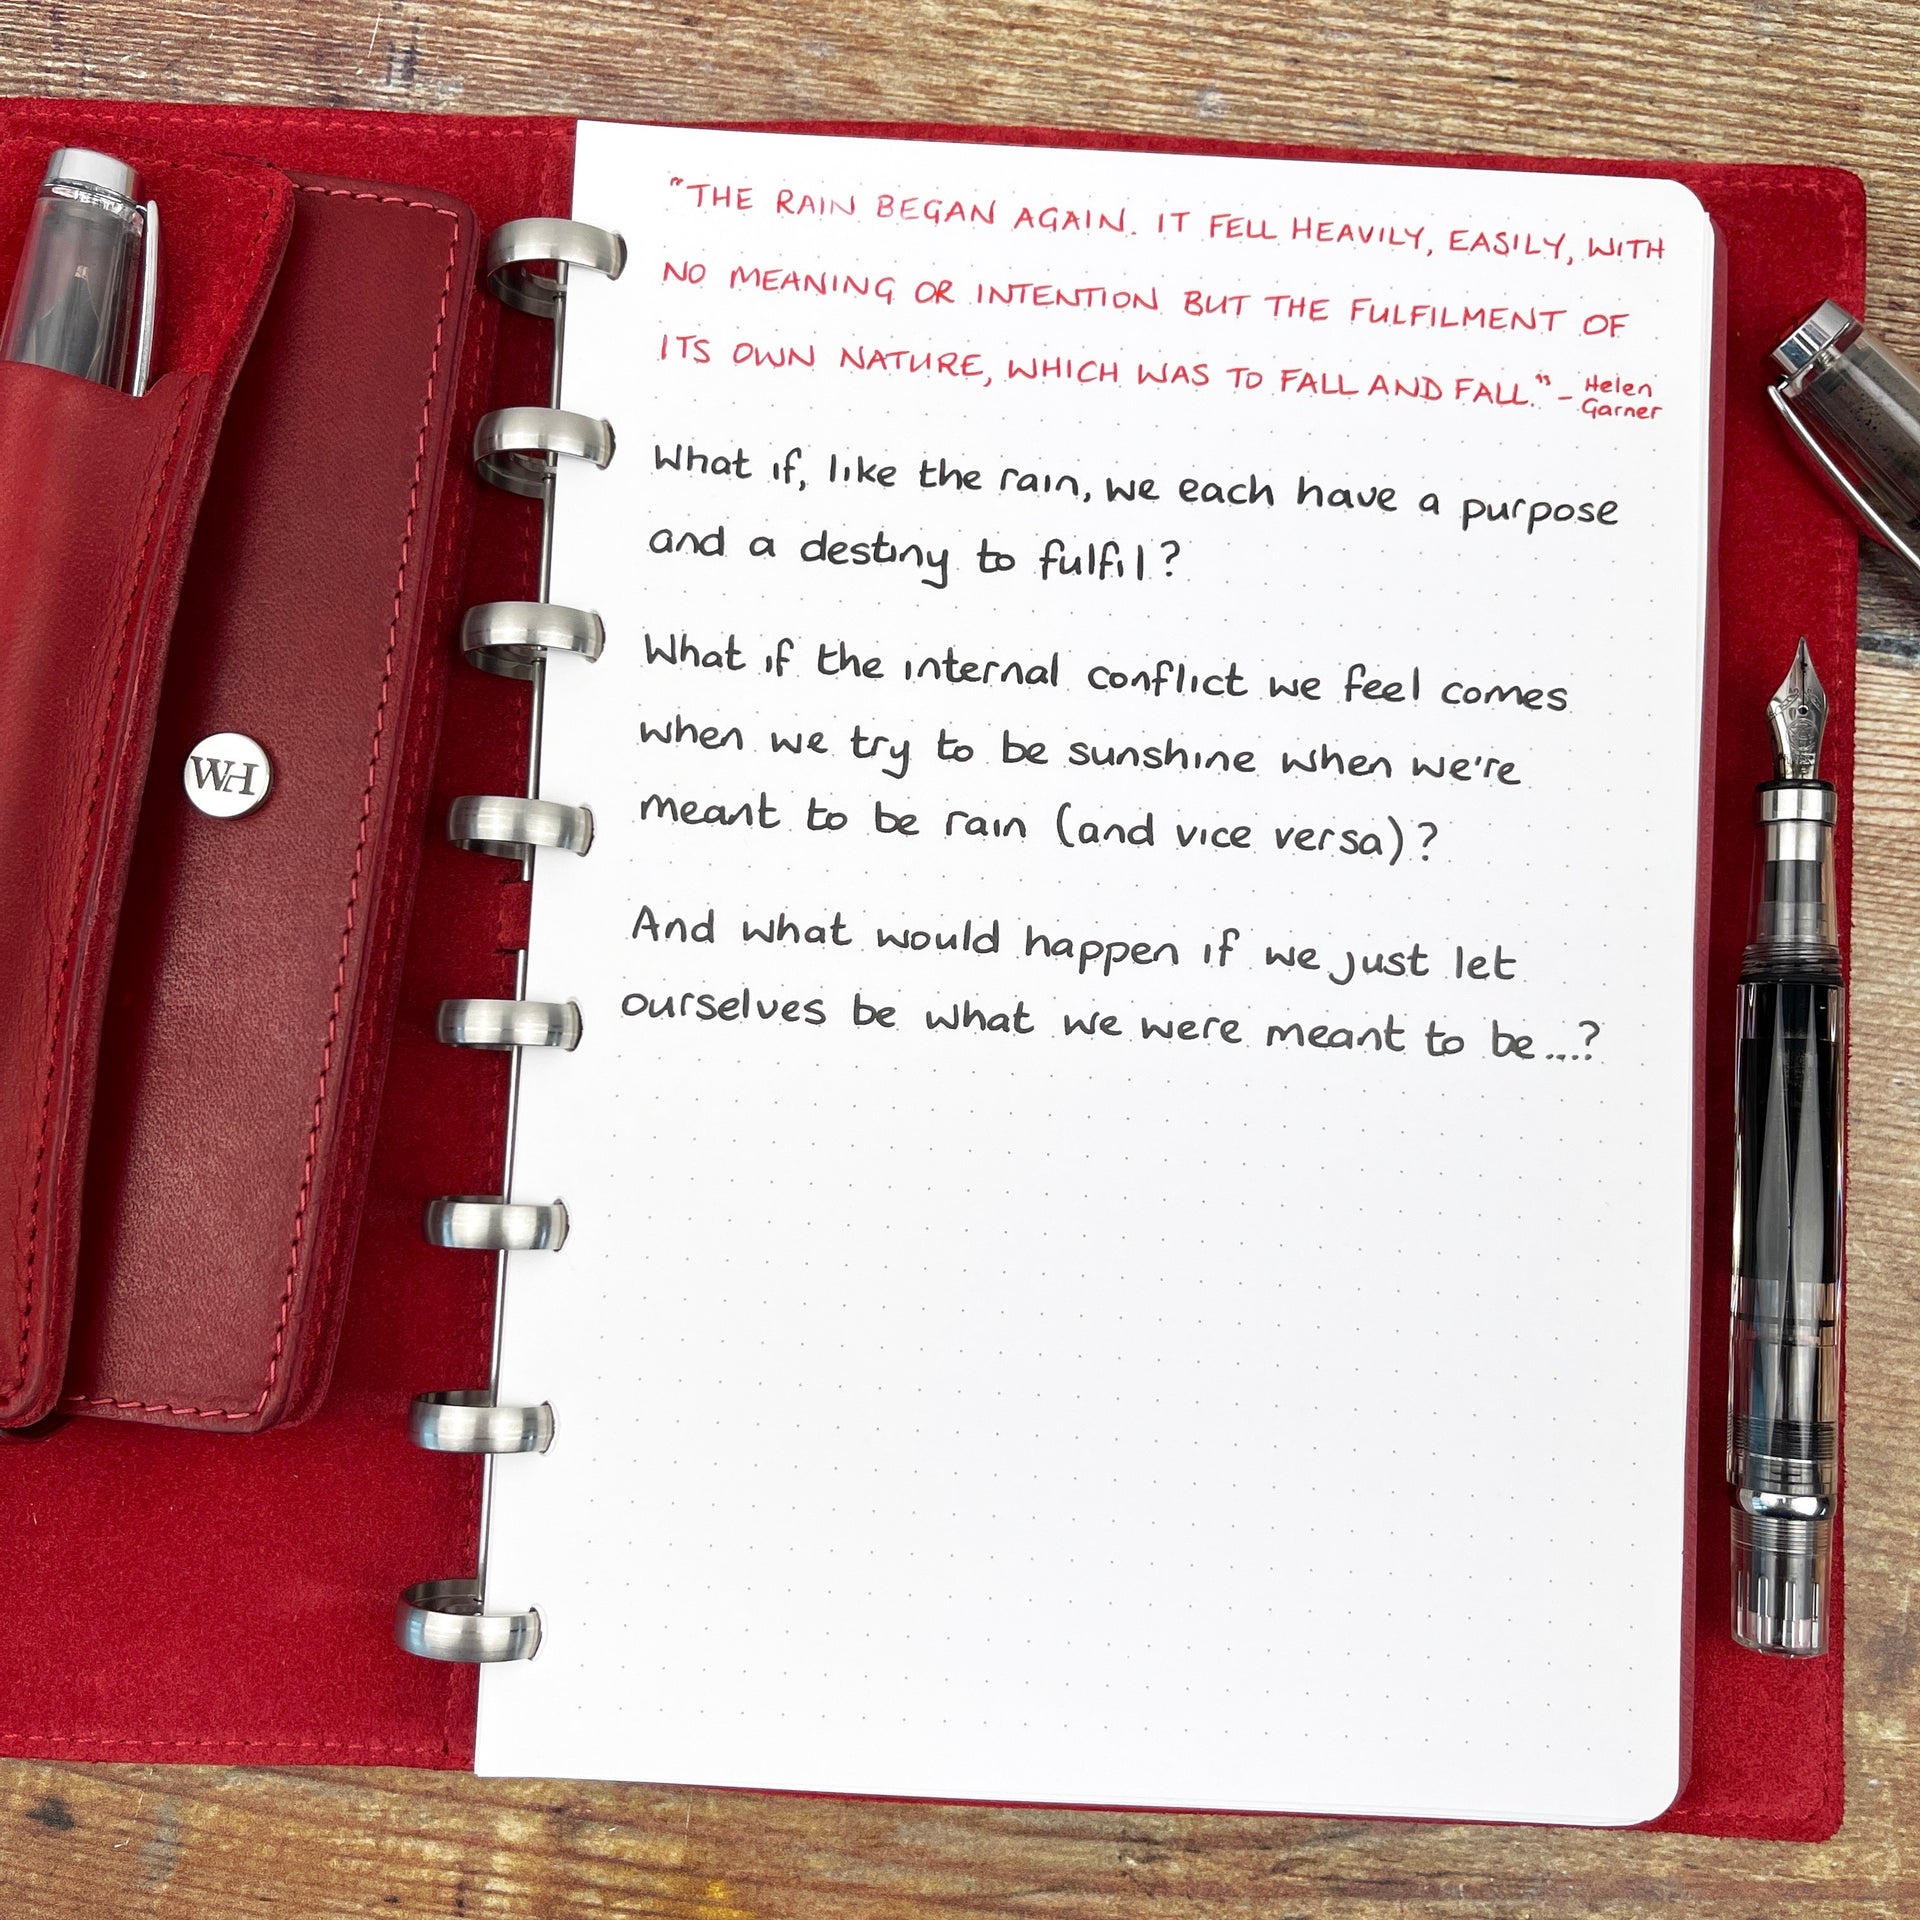 WH
"THE RAIN BEGAN AGAIN. IT FELL HEAVILY, EASILY, WITH
NO MEANING OR INTENTION BUT THE FULFILMENT OF
ITS OWN NATURE, WHICH WAS TO FALL AND FALL." - Helen
Garner
What if, like the rain, we each have a purpose
and a destiny to fulfil?
What if the internal conflict we feel comes
when we try to be sunshine when we're
meant to be rain (and vice versa)?
And what would happen if we just let
ourselves be what we were meant to be...?